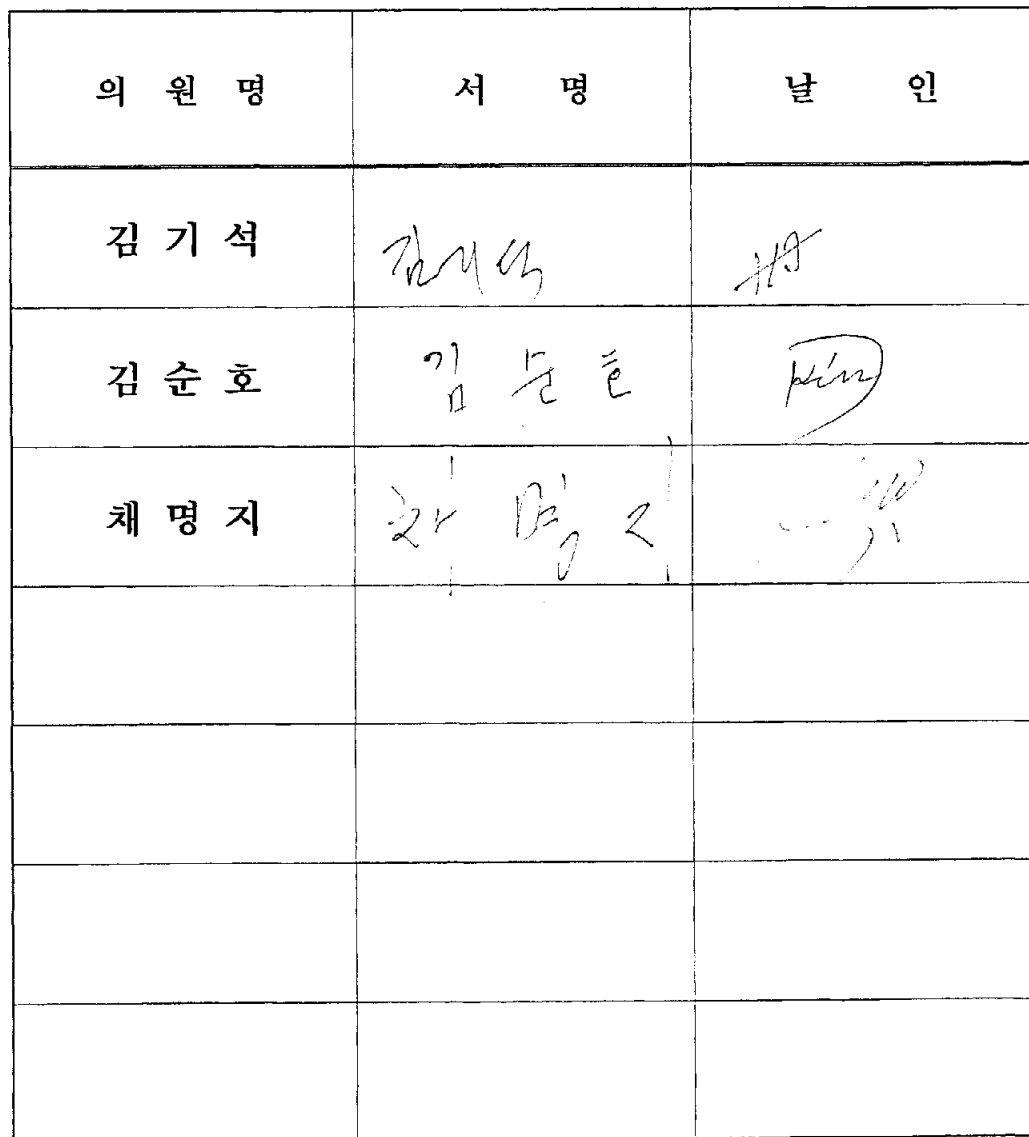 의 원 명 서 명 날 인
김 기 석 김기석
김 순 호 김 순 호 Kim
채 명 지 채 명 지